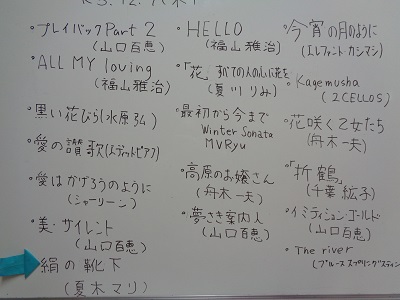 ・プレイバックPart 2
(山口百恵)
ALL MY loving
(福山雅治)
・黒い花びら(水原弘)
・愛の讃歌(エディットピアフ)
・愛はかげろうのように
(シャーリーン)
・美・サイレント
(山口百恵)
絹の靴下
(夏木マリ)
・HELLO
(福山雅治)
・「花」すべての人の心に花を
(夏川りみ)
・最初から今まで
Winter Sonata
MVRyu
・高原のお嬢さん
(舟木一夫)
・夢さき案内人
(山口百恵)
・今宵の月のように
(エレファントカシマシ)
・Kagemusha
(2CELLOS)
・花咲く乙女たち
(舟木一夫)
・「折鶴」
(千葉紘子)
・イミテイション・ゴールド
(山口百恵)
・The river
(ブルーススプリングスティン